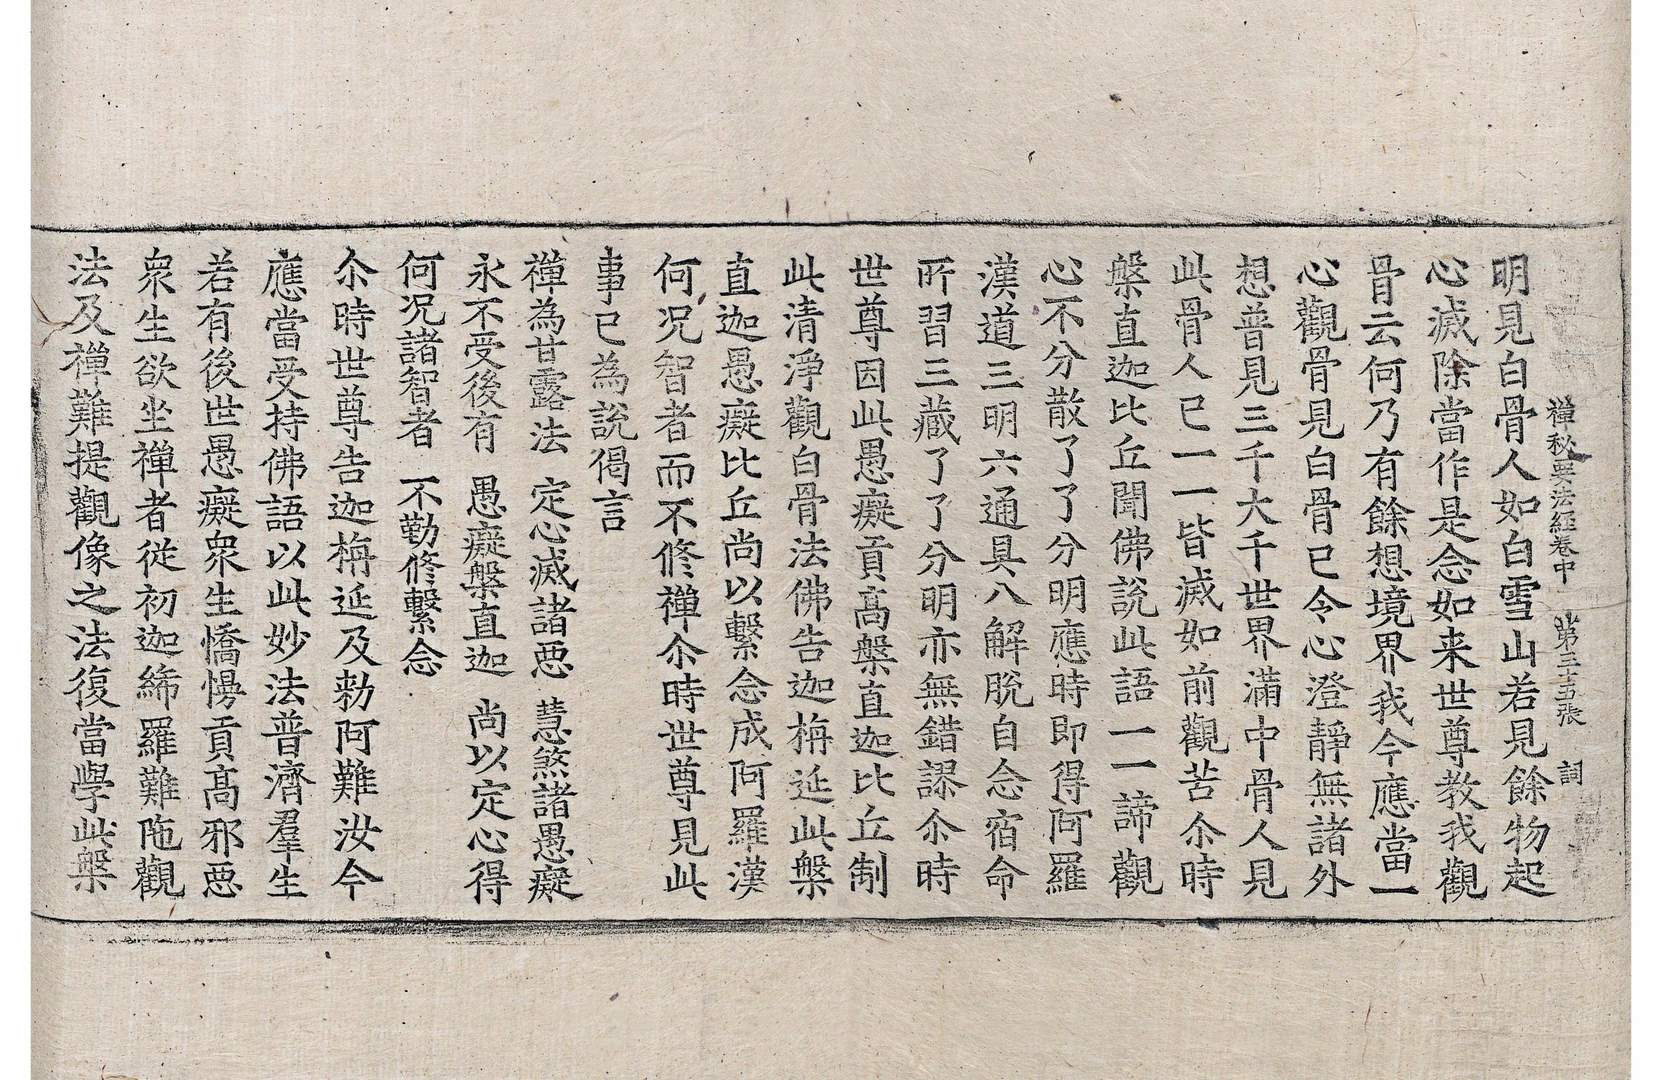 禪秘要法經卷中 第三十五張 詞
明見白骨人如白雪山若見餘物起
心滅除當作是念如来世尊教我觀
骨云何乃有餘想境界我今應當一
心觀骨見白骨已令心澄靜無諸外
想普見三千大千世界滿中骨人見
此骨人已一一皆滅如前觀苦尒時
槃直迦比丘聞佛說此語一一諦觀
心不分散了了分明應時即得阿羅
漢道三明六通具八解脫自念宿命
所習三藏了了分明亦無錯謬尒時
世尊因此愚癡貢高槃直迦比丘制
此清淨觀白骨法佛告迦栴延此槃
直迦愚癡比丘尚以繫念成阿羅漢
何况智者而不修禪尒時世尊見此
事已為說偈言
禪為甘露法 定心滅諸惡 慧煞諸愚癡
永不受後有 愚癡槃直迦 尚以定心得
何况諸智者 不勤修繫念
尒時世尊告迦栴延及勑阿難汝今
應當受持佛語以此妙法普濟羣生
若有後世愚癡衆生憍慢貢高邪惡
衆生欲坐禪者從初迦絺羅難陁觀
法及禪難提觀像之法復當學此槃